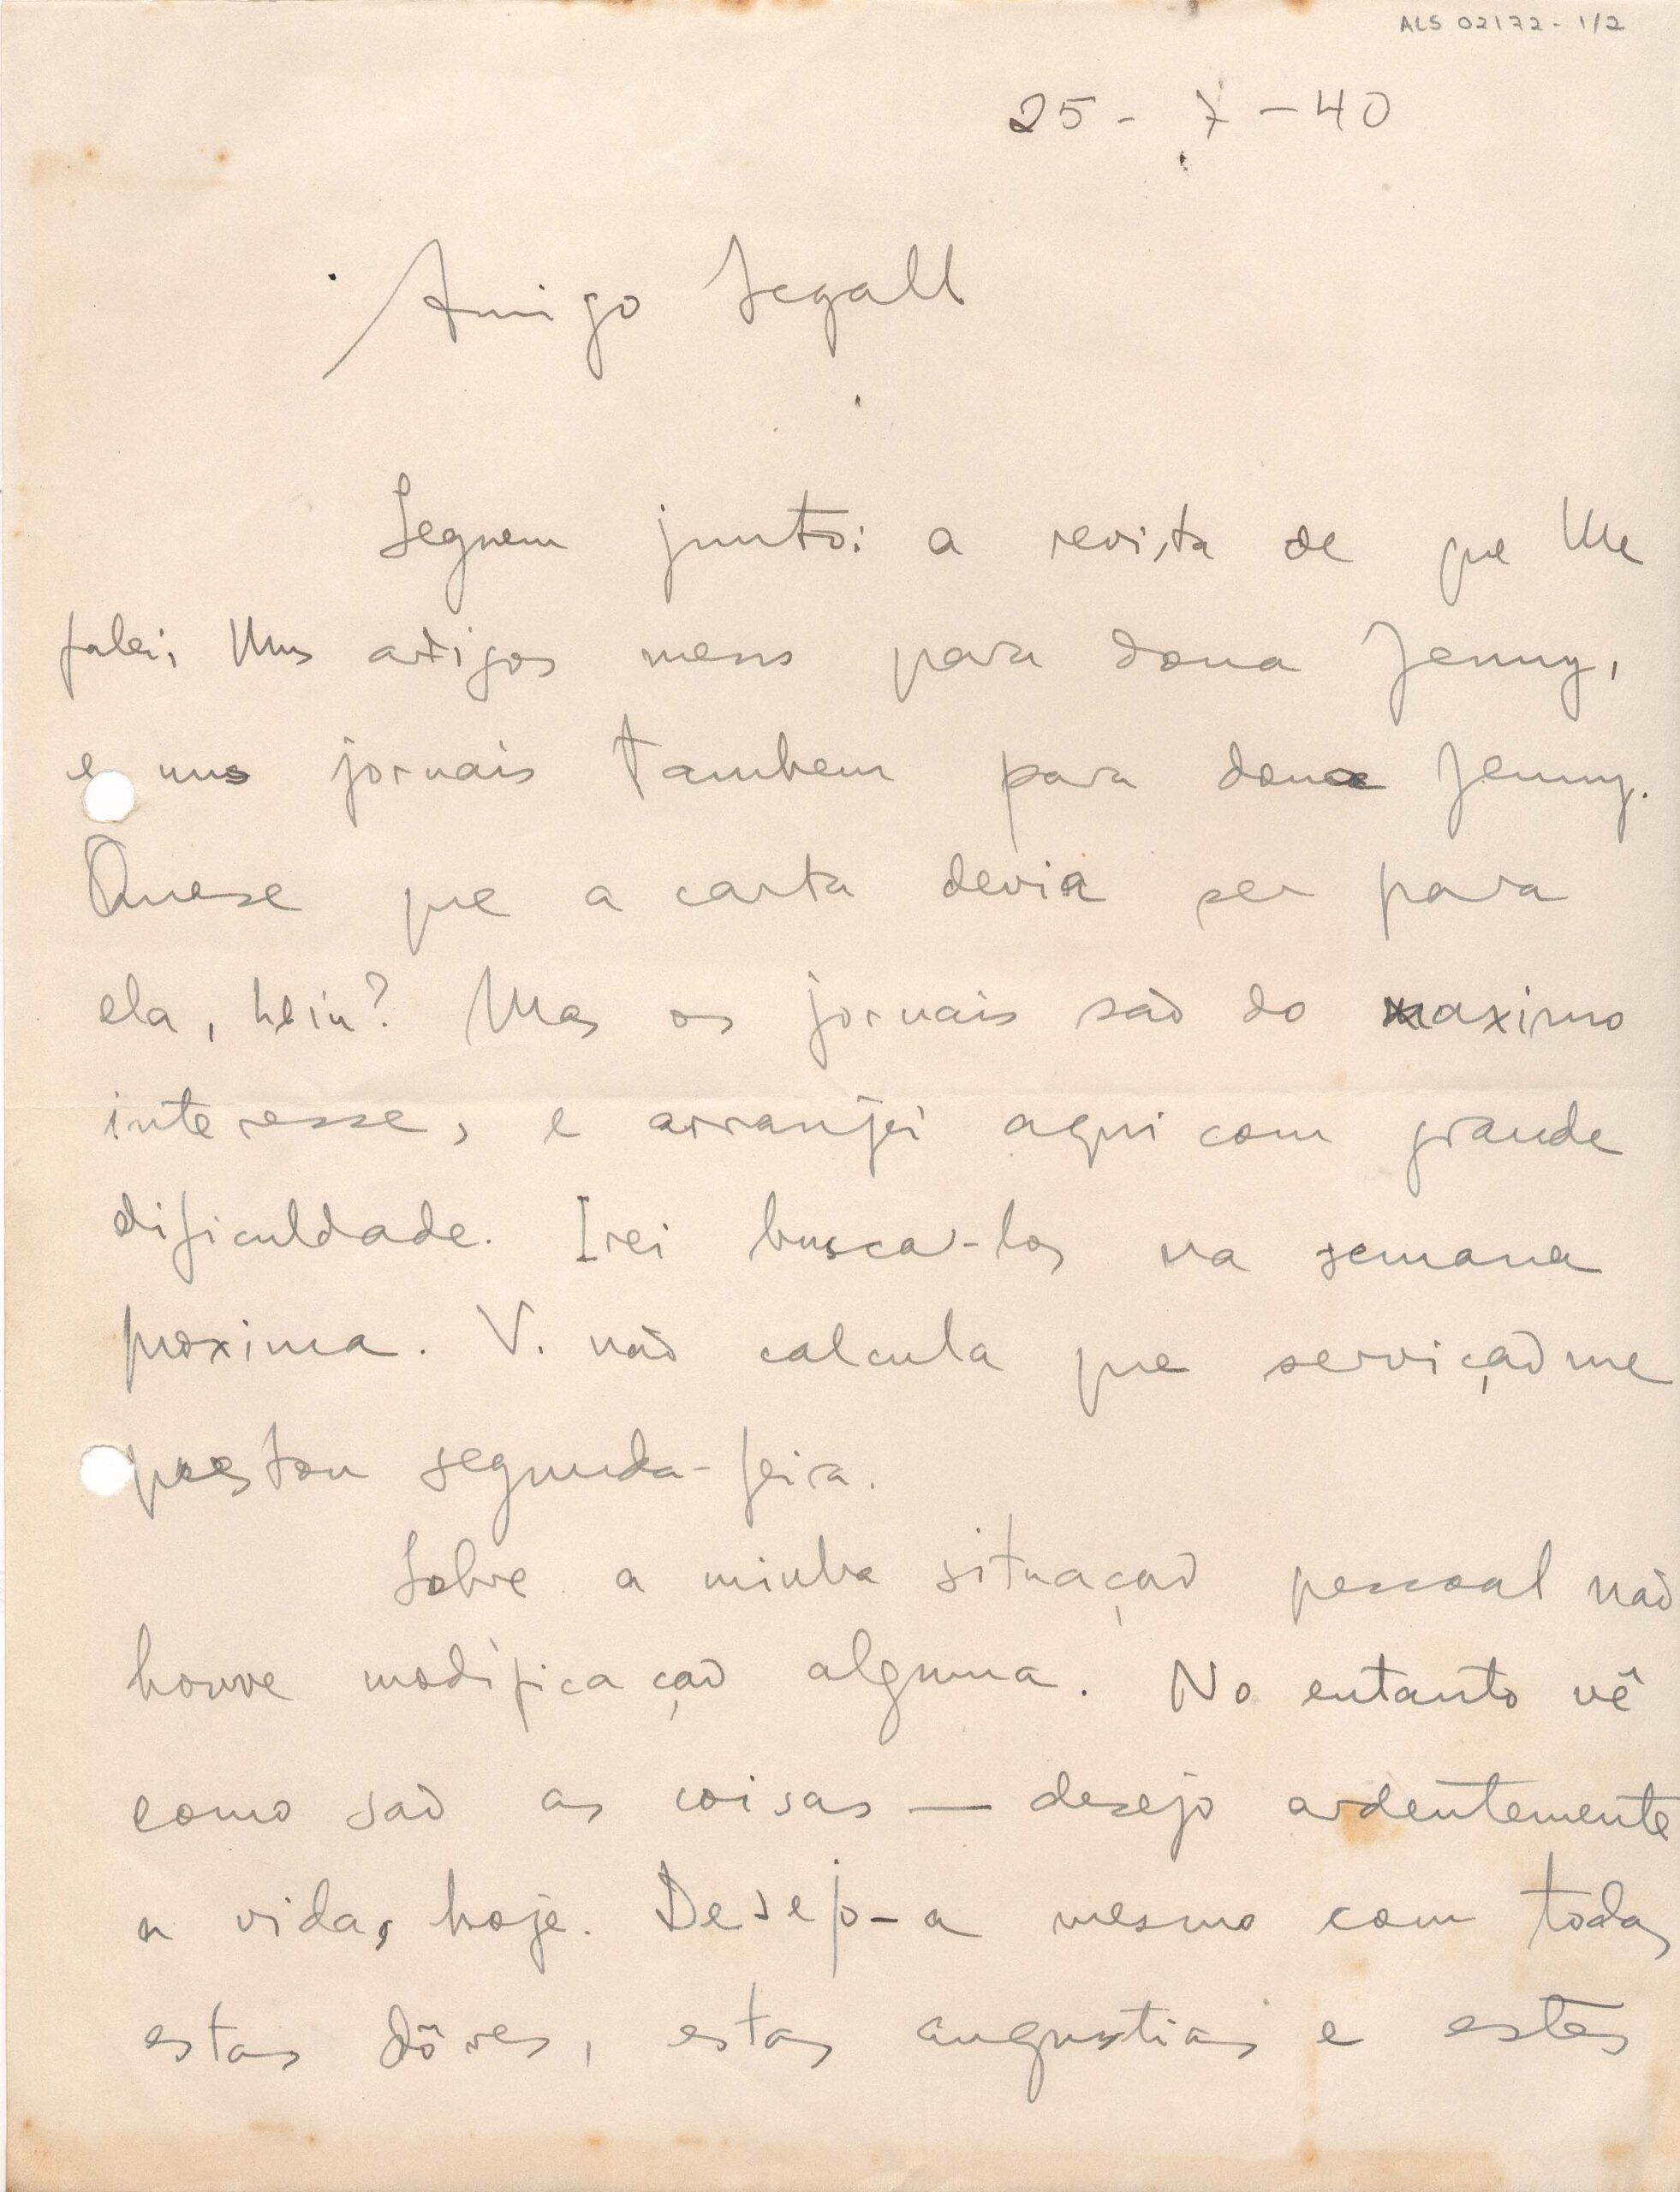 ALS 02172 - 1/2
25 - 7 - 40
Amigo Segall
Seguem junto: a revista de que lhe
falei, uns artigos meus para dona Jenny,
e uns jornais tambem para dona Jenny.
Quase que a carta devia ser para
ela, hein? Mas os jornais são do maximo
interesse, e arranjei aqui com grande
dificuldade. Irei busca-los na semana
proxima. V. não calcula que servição me
prestou segunda-feira.
Sobre a minha situação pessoal não
houve modificação alguma. No entanto vê
como são as coisas — desejo ardentemente
a vida, hoje. Desejo-a mesmo com todas
estas dôres, estas angustias e estes